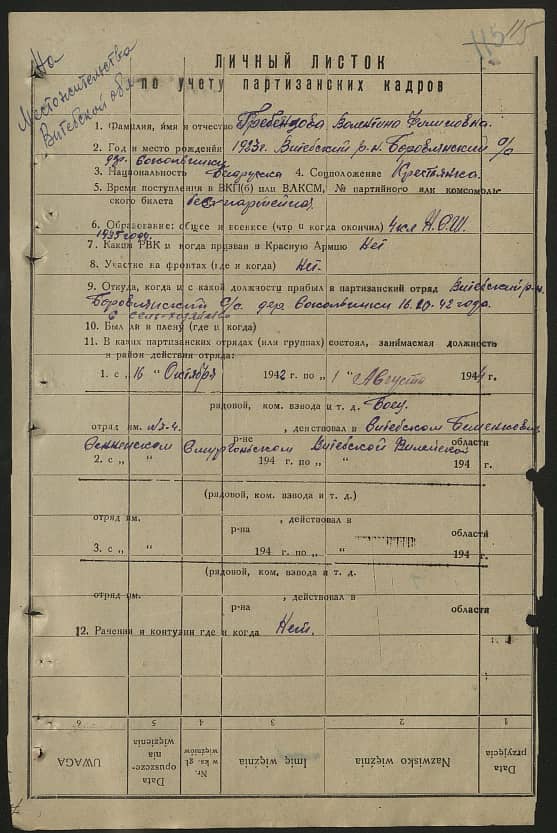 115 115
На
Местожительства
Витебской обл.
ЛИЧНЫЙ ЛИСТОК
по учету партизанских кадров
1. Фамилия, имя и отчество Гребендова Валентина Филиповна.
2. Год и место рождения 1923г. Витебский р-н. Боровлянский с/с
дер. Сокольники
3. Национальность Беларуска 4. Соцположение Крестьянка.
5. Время поступления в ВКП(б) или ВЛКСМ, № партийного или комсомоль-
ского билета беспартейная
6. Образование: общее и военное (что и когда окончил) 4 кл Н.С.Ш.
1935 году.
7. Каким РВК и когда призван в Красную Армию Нет
8. Участие на фронтах (где и когда) Нет.
9. Откуда, когда и с какой должности прибыл в партизанский отряд Витебский р-н.
Боровлянский с/с. дер Сокольники 16.10-42 года.
с сельхозяйства
10. Был ли в плену (где и когда)
11. В каких партизанских отрядах (или группах) состоял, занимаемая должность
и район действия отряда:
1. с „ 16 “ Октября 1942 г. по „ 1 “ Августа 1944 г.
рядовой, ком. взвода и т. д. Боец.
отряд им. №3-4. , действовал в Витебском Бешенкович.
Сенненском Сморгоньском р-не Витебской Вилейской области
2. с „ “ 194 г. по „ “ 194 г.
(рядовой, ком. взвода и т. д.)
отряд им. , действовал в
р-на области
3. с „ “ 194 г. по „ “ 194 г.
(рядовой, ком. взвода и т. д.
отряд им. , действовал в
р-на области
12. Ранения и контузии где и когда Нет.
6 5 4 3 2 1
UWAGA Data opuszcze-nia więzienia Nr. w ks. gł. więźniów Imię więźnia Nazwisko więźnia Data przyjęcia